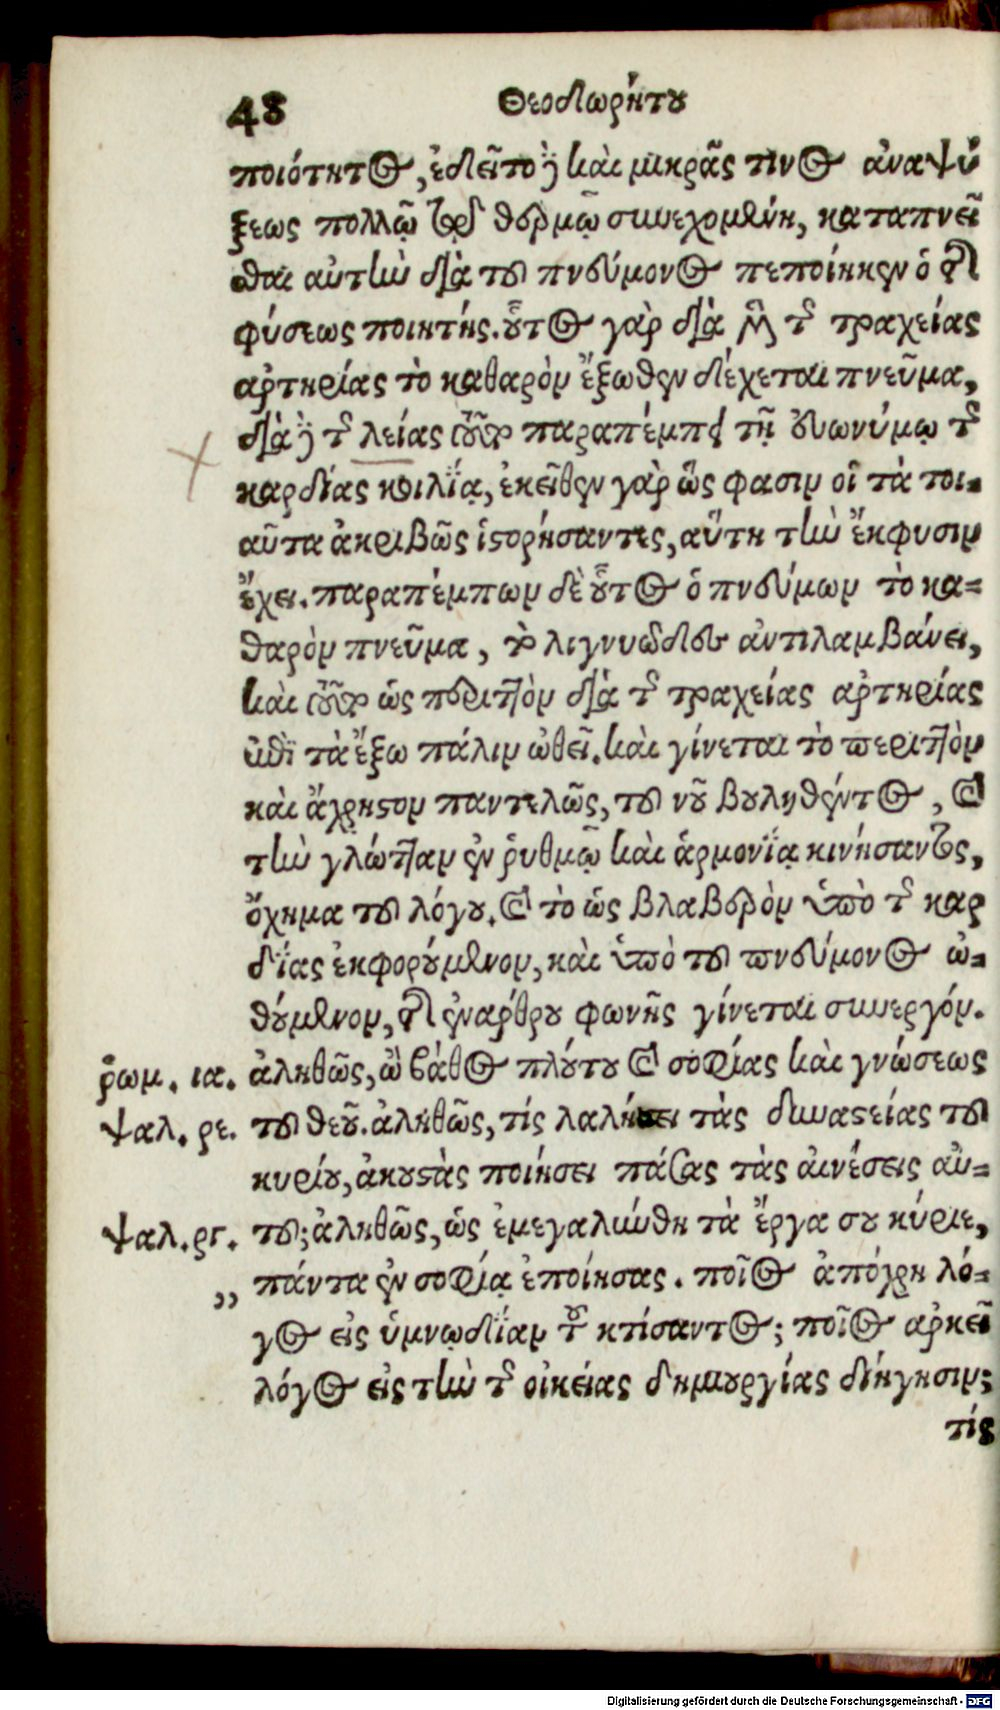 48 Θεοδωρήτου
ποιότητος, ἐδεῖτο δὲ καὶ μικρᾶς τινος ἀναψύ
ξεως πολλῷ τῷ θερμῷ συνεχομένη, καταπνεῖ
σθαι αὐτὴν διὰ τοῦ πνεύμονος πεποίηκεν ὁ τῆς
φύσεως ποιητής. οὗτος γὰρ διὰ μὲν τῆς τραχείας
ἀρτηρίας τὸ καθαρὸν ἔξωθεν δέχεται πνεῦμα,
διὰ δὲ τῆς λείας τοῦτο παραπέμπει τῇ εὐωνύμῳ τῆς
καρδίας κοιλίᾳ, ἐκεῖθεν γὰρ ὥς φασιν οἱ τὰ τοι-
αῦτα ἀκριβῶς ἱστορήσαντες, αὕτη τὴν ἔκφυσιν
ἔχει. παραπέμπων δὲ οὗτος ὁ πνεύμων τὸ κα-
θαρὸν πνεῦμα, τὸ λιγνυῶδες ἀντιλαμβάνει,
καὶ τοῦτο ὡς περιττὸν διὰ τῆς τραχείας ἀρτηρίας
ἐπὶ τὰ ἔξω πάλιν ὠθεῖ. καὶ γίνεται τὸ περιττὸν
καὶ ἄχρηστον παντελῶς, τοῦ νοῦ βουληθέντος, καὶ
τὴν γλῶτταν ἐν ῥυθμῷ καὶ ἁρμονίᾳ κινήσαντος,
ὄχημα τοῦ λόγου. καὶ τὸ ὡς βλαβερὸν ὑπὸ τῆς καρ
δίας ἐκφορούμενον, καὶ ὑπὸ τοῦ πνεύμονος ὠ-
θούμενον, τῆς ἐνάρθρου φωνῆς γίνεται συνεργόν.
ῥωμ. ια. ἀληθῶς, ὢ βάθος πλούτου καὶ σοφίας καὶ γνώσεως
ψαλ. ρε. τοῦ θεοῦ. ἀληθῶς, τίς λαλήσει τὰς δυναστείας τοῦ
κυρίου, ἀκουστὰς ποίησει πάσας τὰς αἰνέσεις αὐ-
ψαλ. ργ. τοῦ; ἀληθῶς, ὡς ἐμεγαλύνθη τὰ ἔργα σου κύριε,
,, πάντα ἐν σοφίᾳ ἐποίησας. ποῖος ἀπόχρη λό-
γος εἰς ὑμνῳδίαν τοῦ κτίσαντος; ποῖος ἀρκεῖ
λόγος εἰς τὴν τῆς οἰκείας δημιουργίας διήγησιν;
τίς
Digitalisierung gefördert durch die Deutsche Forschungsgemeinschaft - DFG